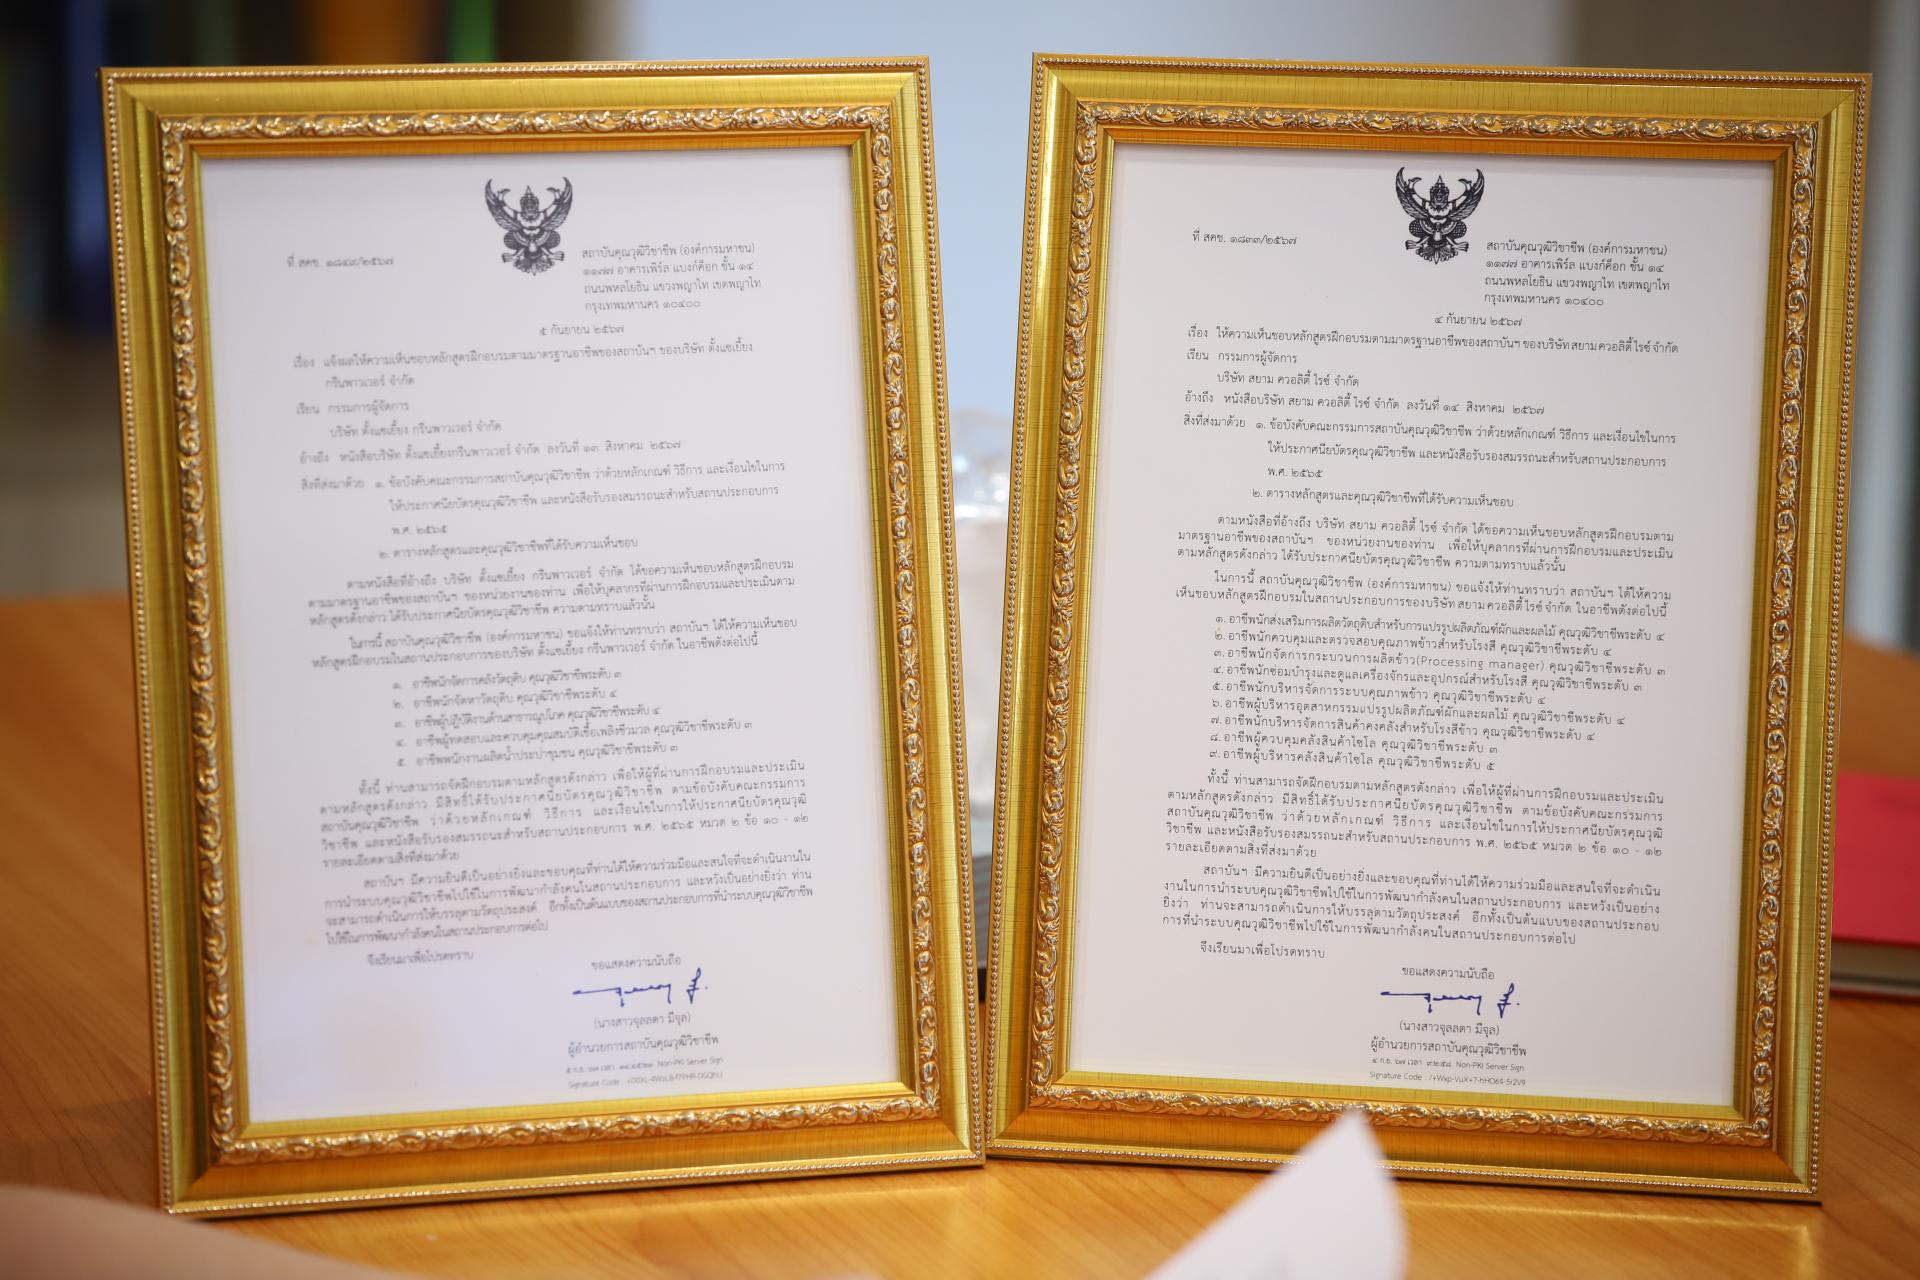 ที่ สคช. ๑๘๔๙/๒๕๖๗
สถาบันคุณวุฒิวิชาชีพ (องค์การมหาชน)
๑๑๗๗ อาคารเพิร์ล แบงก์ค็อก ชั้น ๑๔
ถนนพหลโยธิน แขวงพญาไท เขตพญาไท
กรุงเทพมหานคร ๑๐๔๐๐
๕ กันยายน ๒๕๖๗
เรื่อง แจ้งผลให้ความเห็นชอบหลักสูตรฝึกอบรมตามมาตรฐานอาชีพของสถาบันฯ ของบริษัท ตั้งแซเยี้ยง
กรีนพาวเวอร์ จำกัด
เรียน กรรมการผู้จัดการ
บริษัท ตั้งแซเยี้ยง กรีนพาวเวอร์ จำกัด
อ้างถึง หนังสือบริษัท ตั้งแซเยี้ยงกรีนพาวเวอร์ จำกัด ลงวันที่ ๑๓ สิงหาคม ๒๕๖๗
สิ่งที่ส่งมาด้วย ๑. ข้อบังคับคณะกรรมการสถาบันคุณวุฒิวิชาชีพ ว่าด้วยหลักเกณฑ์ วิธีการ และเงื่อนไขในการ
ให้ประกาศนียบัตรคุณวุฒิวิชาชีพ และหนังสือรับรองสมรรถนะสำหรับสถานประกอบการ
พ.ศ. ๒๕๖๕
๒. ตารางหลักสูตรและคุณวุฒิวิชาชีพที่ได้รับความเห็นชอบ
ตามหนังสือที่อ้างถึง บริษัท ตั้งแซเยี้ยง กรีนพาวเวอร์ จำกัด ได้ขอความเห็นชอบหลักสูตรฝึกอบรม
ตามมาตรฐานอาชีพของสถาบันฯ ของหน่วยงานของท่าน เพื่อให้บุคลากรที่ผ่านการฝึกอบรมและประเมินตาม
หลักสูตรดังกล่าว ได้รับประกาศนียบัตรคุณวุฒิวิชาชีพ ความตามทราบแล้วนั้น
ในการนี้ สถาบันคุณวุฒิวิชาชีพ (องค์การมหาชน) ขอแจ้งให้ท่านทราบว่า สถาบันฯ ได้ให้ความเห็นชอบ
หลักสูตรฝึกอบรมในสถานประกอบการของบริษัท ตั้งแซเยี้ยง กรีนพาวเวอร์ จำกัด ในอาชีพดังต่อไปนี้
๑. อาชีพนักจัดการคลังวัตถุดิบ คุณวุฒิวิชาชีพระดับ ๓
๒. อาชีพนักจัดหาวัตถุดิบ คุณวุฒิวิชาชีพระดับ ๔
๓. อาชีพผู้ปฏิบัติงานด้านสาธารณูปโภค คุณวุฒิวิชาชีพระดับ ๔
๔. อาชีพผู้ทดสอบและควบคุมคุณสมบัติเชื้อเพลิงชีวมวล คุณวุฒิวิชาชีพระดับ ๓
๕. อาชีพพนักงานผลิตน้ำประปาชุมชน คุณวุฒิวิชาชีพระดับ ๓
ทั้งนี้ ท่านสามารถจัดฝึกอบรมตามหลักสูตรดังกล่าว เพื่อให้ผู้ที่ผ่านการฝึกอบรมและประเมิน
ตามหลักสูตรดังกล่าว มีสิทธิ์ได้รับประกาศนียบัตรคุณวุฒิวิชาชีพ ตามข้อบังคับคณะกรรมการ
สถาบันคุณวุฒิวิชาชีพ ว่าด้วยหลักเกณฑ์ วิธีการ และเงื่อนไขในการให้ประกาศนียบัตรคุณวุฒิ
วิชาชีพ และหนังสือรับรองสมรรถนะสำหรับสถานประกอบการ พ.ศ. ๒๕๖๕ หมวด ๒ ข้อ ๑๐ - ๑๒
รายละเอียดตามสิ่งที่ส่งมาด้วย
สถาบันฯ มีความยินดีเป็นอย่างยิ่งและขอบคุณที่ท่านได้ให้ความร่วมมือและสนใจที่จะดำเนินงานใน
การนำระบบคุณวุฒิวิชาชีพไปใช้ในการพัฒนากำลังคนในสถานประกอบการ และหวังเป็นอย่างยิ่งว่า ท่าน
จะสามารถดำเนินการให้บรรลุตามวัตถุประสงค์ อีกทั้งเป็นต้นแบบของสถานประกอบการที่นำระบบคุณวุฒิวิชาชีพ
ไปใช้ในการพัฒนากำลังคนในสถานประกอบการต่อไป
จึงเรียนมาเพื่อโปรดทราบ
ขอแสดงความนับถือ
(นางสาวจุลลดา มีจุล)
ผู้อำนวยการสถาบันคุณวุฒิวิชาชีพ
๕ ก.ย. ๖๗ เวลา Non-PKI Server Sign
Signature Code :
ที่ สคช. ๑๘๓๓/๒๕๖๗
สถาบันคุณวุฒิวิชาชีพ (องค์การมหาชน)
๑๑๗๗ อาคารเพิร์ล แบงก์ค็อก ชั้น ๑๔
ถนนพหลโยธิน แขวงพญาไท เขตพญาไท
กรุงเทพมหานคร ๑๐๔๐๐
๔ กันยายน ๒๕๖๗
เรื่อง ให้ความเห็นชอบหลักสูตรฝึกอบรมตามมาตรฐานอาชีพของสถาบันฯ ของบริษัท สยาม ควอลิตี้ ไรซ์ จำกัด
เรียน กรรมการผู้จัดการ
บริษัท สยาม ควอลิตี้ ไรซ์ จำกัด
อ้างถึง หนังสือบริษัท สยาม ควอลิตี้ ไรซ์ จำกัด ลงวันที่ ๑๔ สิงหาคม ๒๕๖๗
สิ่งที่ส่งมาด้วย ๑. ข้อบังคับคณะกรรมการสถาบันคุณวุฒิวิชาชีพ ว่าด้วยหลักเกณฑ์ วิธีการ และเงื่อนไขในการ
ให้ประกาศนียบัตรคุณวุฒิวิชาชีพ และหนังสือรับรองสมรรถนะสำหรับสถานประกอบการ
พ.ศ. ๒๕๖๕
๒. ตารางหลักสูตรและคุณวุฒิวิชาชีพที่ได้รับความเห็นชอบ
ตามหนังสือที่อ้างถึง บริษัท สยาม ควอลิตี้ ไรซ์ จำกัด ได้ขอความเห็นชอบหลักสูตรฝึกอบรมตาม
มาตรฐานอาชีพของสถาบันฯ ของหน่วยงานของท่าน เพื่อให้บุคลากรที่ผ่านการฝึกอบรมและประเมิน
ตามหลักสูตรดังกล่าว ได้รับประกาศนียบัตรคุณวุฒิวิชาชีพ ความตามทราบแล้วนั้น
ในการนี้ สถาบันคุณวุฒิวิชาชีพ (องค์การมหาชน) ขอแจ้งให้ท่านทราบว่า สถาบันฯ ได้ให้ความ
เห็นชอบหลักสูตรฝึกอบรมในสถานประกอบการของบริษัท สยาม ควอลิตี้ ไรซ์ จำกัด ในอาชีพดังต่อไปนี้
๑. อาชีพนักส่งเสริมการผลิตวัตถุดิบสำหรับการแปรรูปผลิตภัณฑ์ผักและผลไม้ คุณวุฒิวิชาชีพระดับ ๔
๒. อาชีพนักควบคุมและตรวจสอบคุณภาพข้าวสำหรับโรงสี คุณวุฒิวิชาชีพระดับ ๔
๓. อาชีพนักจัดการกระบวนการผลิตข้าว(Processing manager) คุณวุฒิวิชาชีพระดับ ๓
๔. อาชีพนักซ่อมบำรุงและดูแลเครื่องจักรและอุปกรณ์สำหรับโรงสี คุณวุฒิวิชาชีพระดับ ๓
๕. อาชีพนักบริหารจัดการระบบคุณภาพข้าว คุณวุฒิวิชาชีพระดับ ๔
๖. อาชีพผู้บริหารอุตสาหกรรมแปรรูปผลิตภัณฑ์ผักและผลไม้ คุณวุฒิวิชาชีพระดับ ๔
๗. อาชีพนักบริหารจัดการสินค้าคงคลังสำหรับโรงสีข้าว คุณวุฒิวิชาชีพระดับ ๔
๘. อาชีพผู้ควบคุมคลังสินค้าไซโล คุณวุฒิวิชาชีพระดับ ๓
๙. อาชีพผู้บริหารคลังสินค้าไซโล คุณวุฒิวิชาชีพระดับ ๕
ทั้งนี้ ท่านสามารถจัดฝึกอบรมตามหลักสูตรดังกล่าว เพื่อให้ผู้ที่ผ่านการฝึกอบรมและประเมิน
ตามหลักสูตรดังกล่าว มีสิทธิ์ได้รับประกาศนียบัตรคุณวุฒิวิชาชีพ ตามข้อบังคับคณะกรรมการ
สถาบันคุณวุฒิวิชาชีพ ว่าด้วยหลักเกณฑ์ วิธีการ และเงื่อนไขในการให้ประกาศนียบัตรคุณวุฒิ
วิชาชีพ และหนังสือรับรองสมรรถนะสำหรับสถานประกอบการ พ.ศ. ๒๕๖๕ หมวด ๒ ข้อ ๑๐ - ๑๒
รายละเอียดตามสิ่งที่ส่งมาด้วย
สถาบันฯ มีความยินดีเป็นอย่างยิ่งและขอบคุณที่ท่านได้ให้ความร่วมมือและสนใจที่จะดำเนิน
งานในการนำระบบคุณวุฒิวิชาชีพไปใช้ในการพัฒนากำลังคนในสถานประกอบการ และหวังเป็นอย่าง
ยิ่งว่า ท่านจะสามารถดำเนินการให้บรรลุตามวัตถุประสงค์ อีกทั้งเป็นต้นแบบของสถานประกอบ
การที่นำระบบคุณวุฒิวิชาชีพไปใช้ในการพัฒนากำลังคนในสถานประกอบการต่อไป
จึงเรียนมาเพื่อโปรดทราบ
ขอแสดงความนับถือ
(นางสาวจุลลดา มีจุล)
ผู้อำนวยการสถาบันคุณวุฒิวิชาชีพ
๔ ก.ย. ๖๗ เวลา ๙:๒๕:๕๘ Non-PKI Server Sign
Signature Code : /+Wxp-VuX+7-hHO64-5r2V9